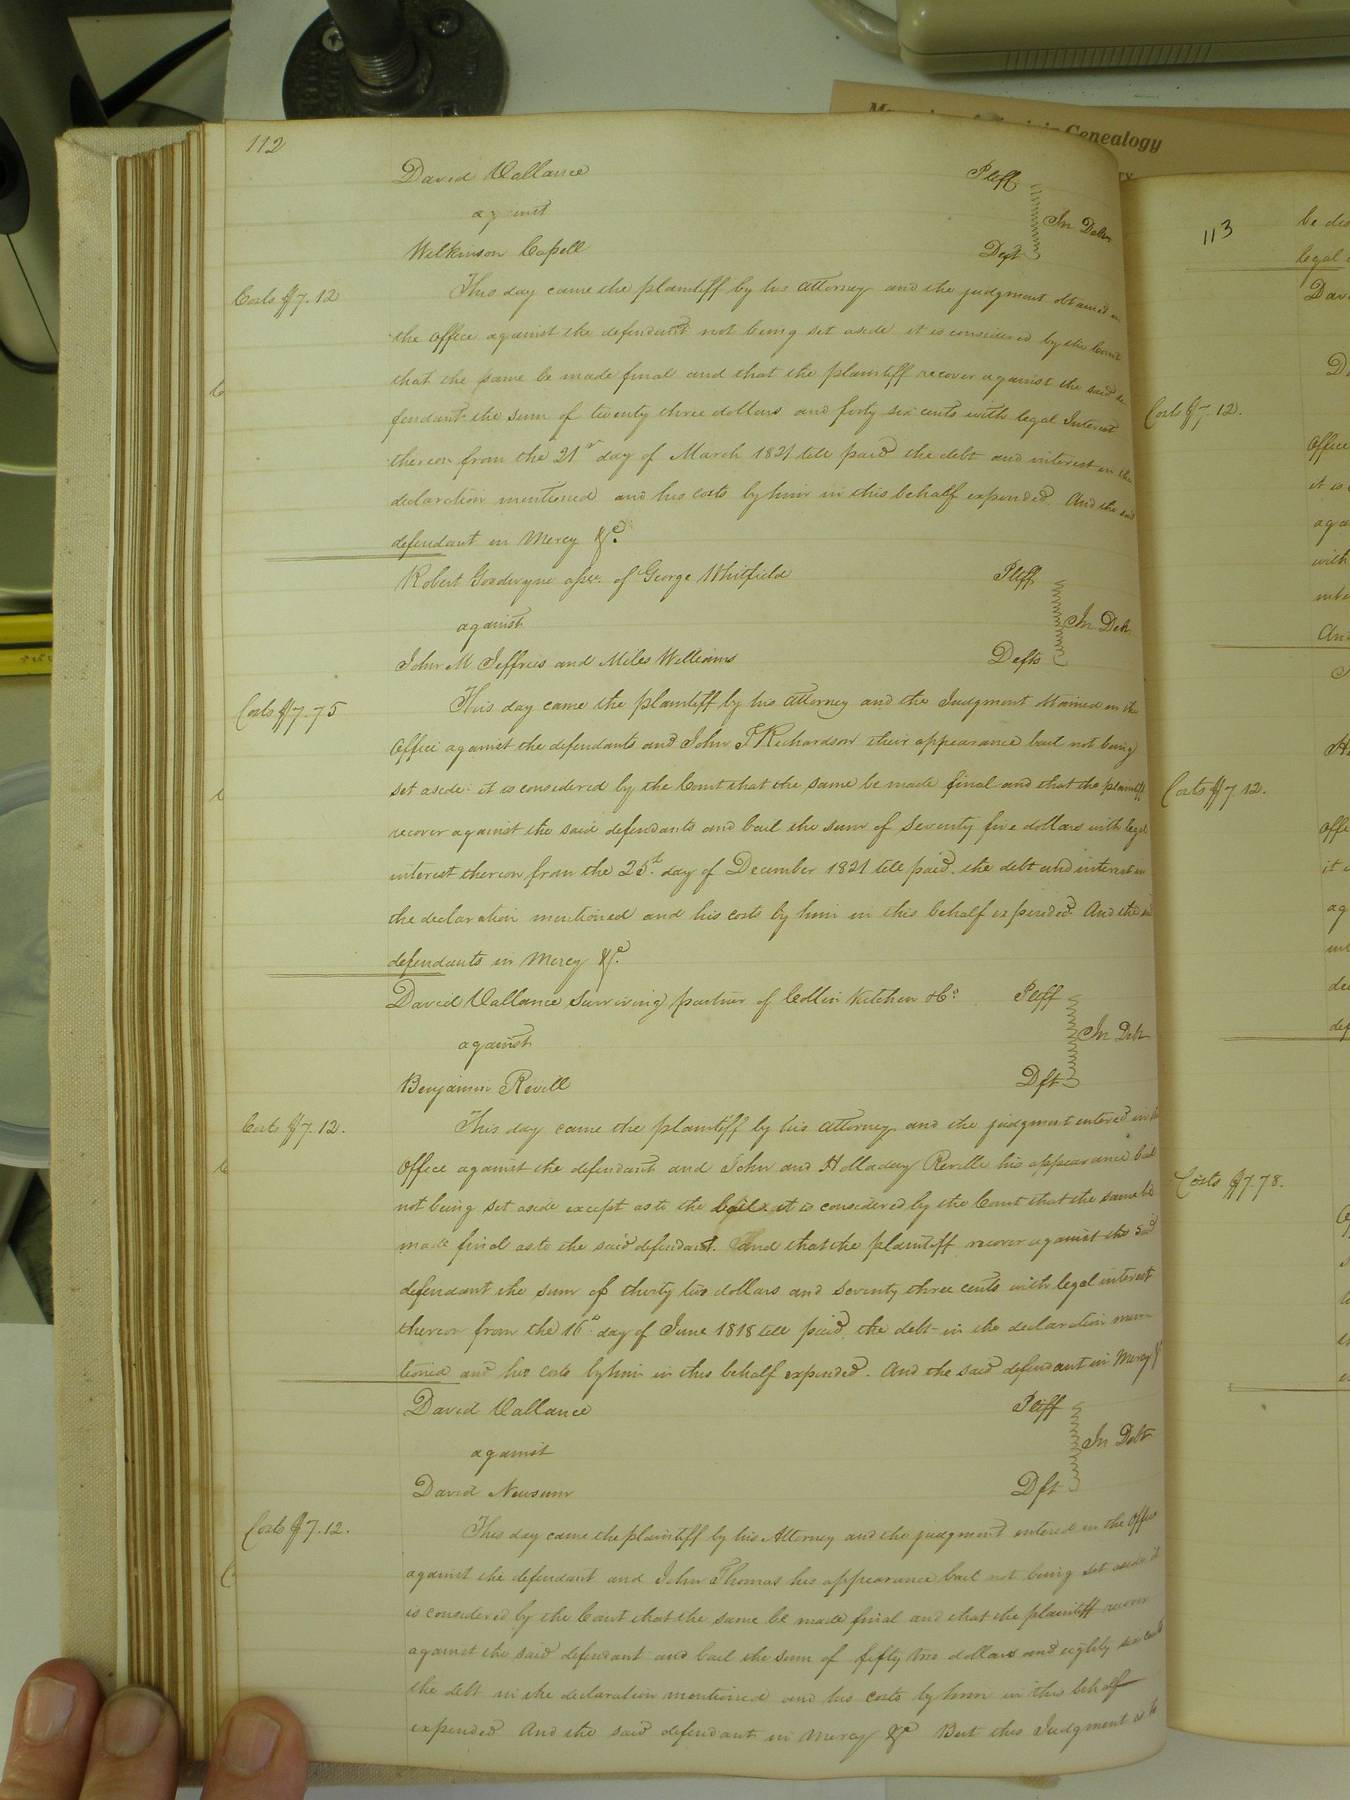 112
David Vallance Pltff
against In Debt
Wilkinson Capell Deft
Costs $7.12 This day came the plaintiff by his attorney and the judgment obtained in
the office against the defendant not being set aside it is considered by the Court
that the same be made final and that the plaintiff recover against the said de
fendant the sum of twenty three dollars and forty six cents with legal Interest
thereon from the 21st day of March 1821 till paid the debt and interest in the
declaration mentioned and his costs by him in this behalf expended. And the said
defendant in Mercy &c.
Robert Goodwyne assee of George Whitfield Pltff
against In Debt
John M Jeffries and Miles Williams Defts
Costs $7.75 This day came the plaintiff by his attorney and the Judgment obtained in the
Office against the defendants and John T Richardson their appearance bail not being
set aside it is considered by the Court that the same be made final and that the plaintiff
recover against the said defendants and bail the sum of seventy five dollars with legal
interest thereon from the 25th day of December 1821 till paid. the debt and interest in
the declaration mentioned and his costs by him in this behalf expended. And the said
defendants in Mercy &c.
David Vallance Surviving partner of Collin Kitchen &Co. Pltff
against In Debt
Benjamin Revill Dft
Costs $7.12. This day came the plaintiff by his attorney and the judgment entered in the
Office against the defendant and John and Holladay Reville his appearance bail
not being set aside except as to the bail it is considered by the Court that the same be
made final as to the said defendant. And that the plaintiff recover against the said
defendant the sum of thirty two dollars and seventy three cents with legal interest
thereon from the 16th day of June 1818 till paid. the debt in the declaration men
tioned and his costs by him in this behalf expended. And the said defendant in Mercy &
David Vallance Pltff
against In Debt
David Newsum Dft
Costs $7.12. This day came the plaintiff by his Attorney and the judgment entered in the Office
against the defendant and John Thomas his appearance bail not being set aside it
is considered by the Court that the same be made final and that the plaintiff recover
against the said defendant and bail the sum of fifty two dollars and eighty six cents
the debt in the declaration mentioned and his costs by him in this behalf
expended And the said defendant in Mercy &c But this Judgment is to
Genealogy
113
be
legal
Costs $7.12.
Office
it is
with
And
Costs $7.12.
Costs $7.78.